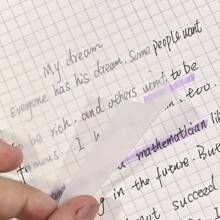 My dream
Everyone has his dream. Some people want
to be rich. and others want to be
famous. I too.
a mathematician
in the future. But
not succeed